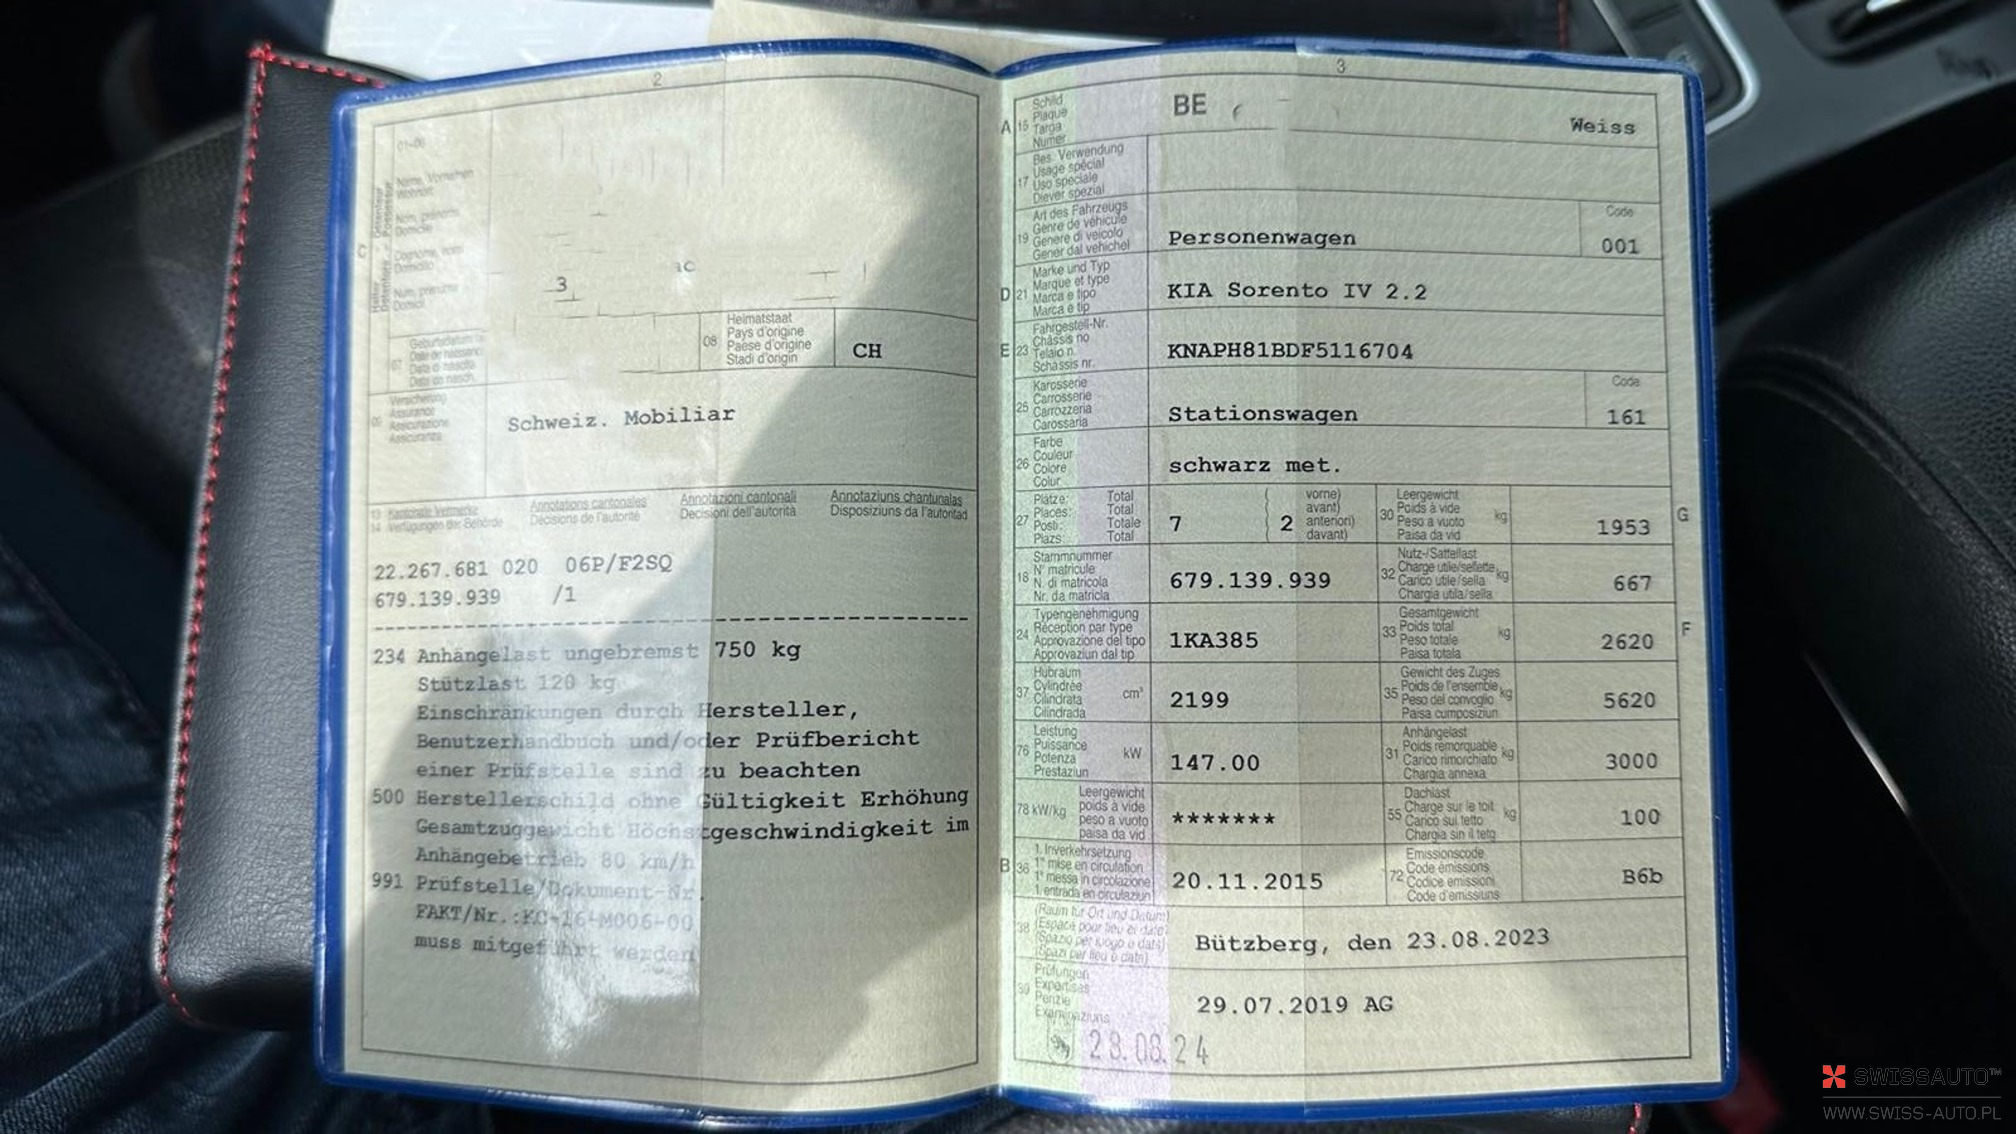 2
01-06
Name, Vornamen
Wohnort
Nom, prénoms
Domicile
Cognome, nomi
Domicilio
Num, prenums
Domicil
C
3
07
Geburtsdatum
Date de naissance
Data di nascita
Data da nasch.
08
Heimatstaat
Pays d'origine
Paese d'origine
Stadi d'origin
CH
09
Versicherung
Assurance
Assicurazione
Assicuranza
Schweiz. Mobiliar
13 Kantonale Vermerke
14 Verfügungen der Behörde
Annotations cantonales
Décisions de l'autorité
Annotazioni cantonali
Decisioni dell'autorità
Annotaziuns chantunalas
Disposiziuns da l'autoritad
22.267.681 020 06P/F2SQ
679.139.939 /1
234 Anhängelast ungebremst 750 kg
Stützlast 120 kg
Einschränkungen durch Hersteller,
Benutzerhandbuch und/oder Prüfbericht
einer Prüfstelle sind zu beachten
500 Herstellerschild ohne Gültigkeit Erhöhung
Gesamtzuggewicht Höchstgeschwindigkeit im
Anhängebetrieb 80 km/h
991 Prüfstelle/Dokument-Nr.
FAKT/Nr.:KC-16-M006-00
muss mitgeführt werden
3
A 15
Schild
Plaque
Targa
Numer
BE
Weiss
17
Bes. Verwendung
Usage spécial
Uso speciale
Diever spezial
19
Art des Fahrzeugs
Genre de véhicule
Genere di veicolo
Gener dal vehichel
Personenwagen
Code
001
D 21
Marke und Typ
Marque et type
Marca e tipo
Marca e tip
KIA Sorento IV 2.2
E 23
Fahrgestell-Nr.
Châssis no
Telaio n.
Schassis nr.
KNAPH81BDF5116704
25
Karosserie
Carrosserie
Carrozzeria
Carossaria
Stationswagen
Code
161
26
Farbe
Couleur
Colore
Colur
schwarz met.
27
Plätze: Total
Places: Total
Posti: Totale
Plazs: Total
7
( 2
vorne)
avant)
anteriori)
davant)
30
Leergewicht
Poids à vide
Peso a vuoto
Paisa da vid
kg
1953
G
18
Stammnummer
N° matricule
N. di matricola
Nr. da matricla
679.139.939
32
Nutz-/Sattellast
Charge utile/sellette
Carico utile/sella
Chargia utila/sella
kg
667
24
Typengenehmigung
Réception par type
Approvazione del tipo
Approvaziun dal tip
1KA385
33
Gesamtgewicht
Poids total
Peso totale
Paisa totala
kg
2620
F
37
Hubraum
Cylindrée
Cilindrata
Cilindrada
cm³
2199
35
Gewicht des Zuges
Poids de l'ensemble
Peso del convoglio
Paisa cumposiziun
kg
5620
76
Leistung
Puissance
Potenza
Prestaziun
kW
147.00
31
Anhängelast
Poids remorquable
Carico rimorchiato
Chargia annexa
kg
3000
78 kW/kg
Leergewicht
poids à vide
peso a vuoto
paisa da vid
*******
55
Dachlast
Charge sur le toit
Carico sul tetto
Chargia sin il tetg
kg
100
B 36
1. Inverkehrsetzung
1re mise en circulation
1a messa in circolazione
1. entrada en circulaziun
20.11.2015
72
Emissionscode
Code émissions
Codice emissioni
Code d'emissiuns
B6b
38
(Raum für Ort und Datum)
(Espace pour lieu et date)
(Spazio per luogo e data)
(Spazi per lieu e data)
Bützberg, den 23.08.2023
39
Prüfungen
Expertises
Perizie
Examinaziuns
29.07.2019 AG
28.08.24
SWISSAUTO™
WWW.SWISS-AUTO.PL